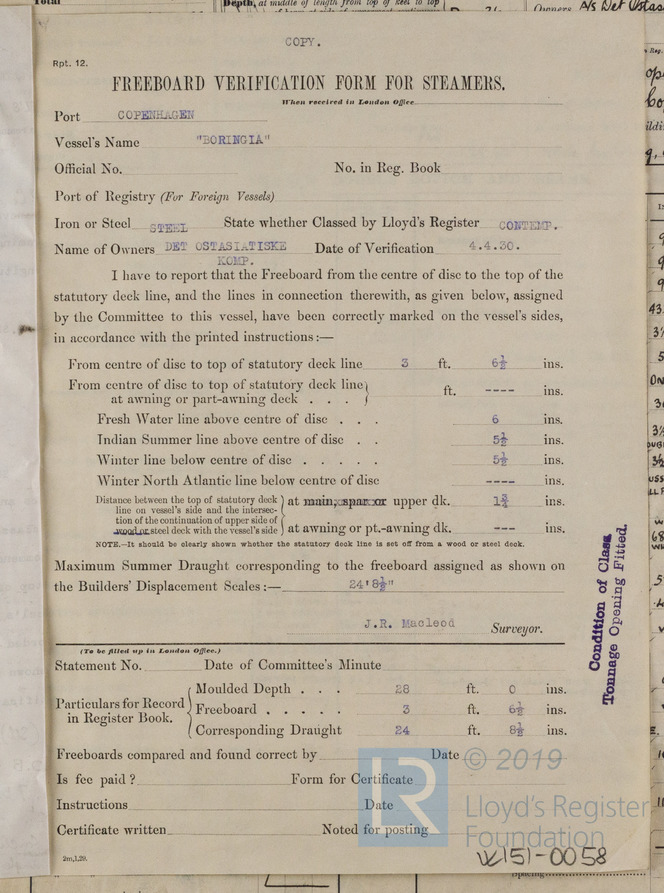 Total
Depth, at middle of length from top of keel to top
Owners A/s Det Ostas
COPY.
Rpt. 12.
FREEBOARD VERIFICATION FORM FOR STEAMERS.
When received in London Office
Port COPENHAGEN
Vessel's Name "BORINGIA"
Official No. No. in Reg. Book
Port of Registry (For Foreign Vessels)
Iron or Steel STEEL State whether Classed by Lloyd's Register CONTEMP.
Name of Owners DET OSTASIATISKE Date of Verification 4.4.30.
KOMP.
I have to report that the Freeboard from the centre of disc to the top of the
statutory deck line, and the lines in connection therewith, as given below, assigned
by the Committee to this vessel, have been correctly marked on the vessel's sides,
in accordance with the printed instructions:—
From centre of disc to top of statutory deck line 3 ft. 6½ ins.
From centre of disc to top of statutory deck line
at awning or part-awning deck . . . ft. ---- ins.
Fresh Water line above centre of disc . . . 6 ins.
Indian Summer line above centre of disc . . 5½ ins.
Winter line below centre of disc . . . . . 5½ ins.
Winter North Atlantic line below centre of disc ---- ins.
Distance between the top of statutory deck
line on vessel's side and the intersec-
tion of the continuation of upper side of
wood or steel deck with the vessel's side
at main, spar or upper dk. 1¾ ins.
at awning or pt.-awning dk. --- ins.
NOTE.—It should be clearly shown whether the statutory deck line is set off from a wood or steel deck.
Maximum Summer Draught corresponding to the freeboard assigned as shown on
the Builders' Displacement Scales:— 24'8½"
J.R. Macleod Surveyor.
(To be filled up in London Office.)
Statement No. Date of Committee's Minute
Particulars for Record
in Register Book.
Moulded Depth . . . 28 ft. 0 ins.
Freeboard . . . . . 3 ft. 6½ ins.
Corresponding Draught 24 ft. 8½ ins.
Freeboards compared and found correct by Date
Is fee paid? Form for Certificate
Instructions Date
Certificate written Noted for posting
2m,1,29.
Condition of Class
Tonnage Opening Fitted.
LR
© 2019
Lloyd's Register
Foundation
W151-0058
Spacing